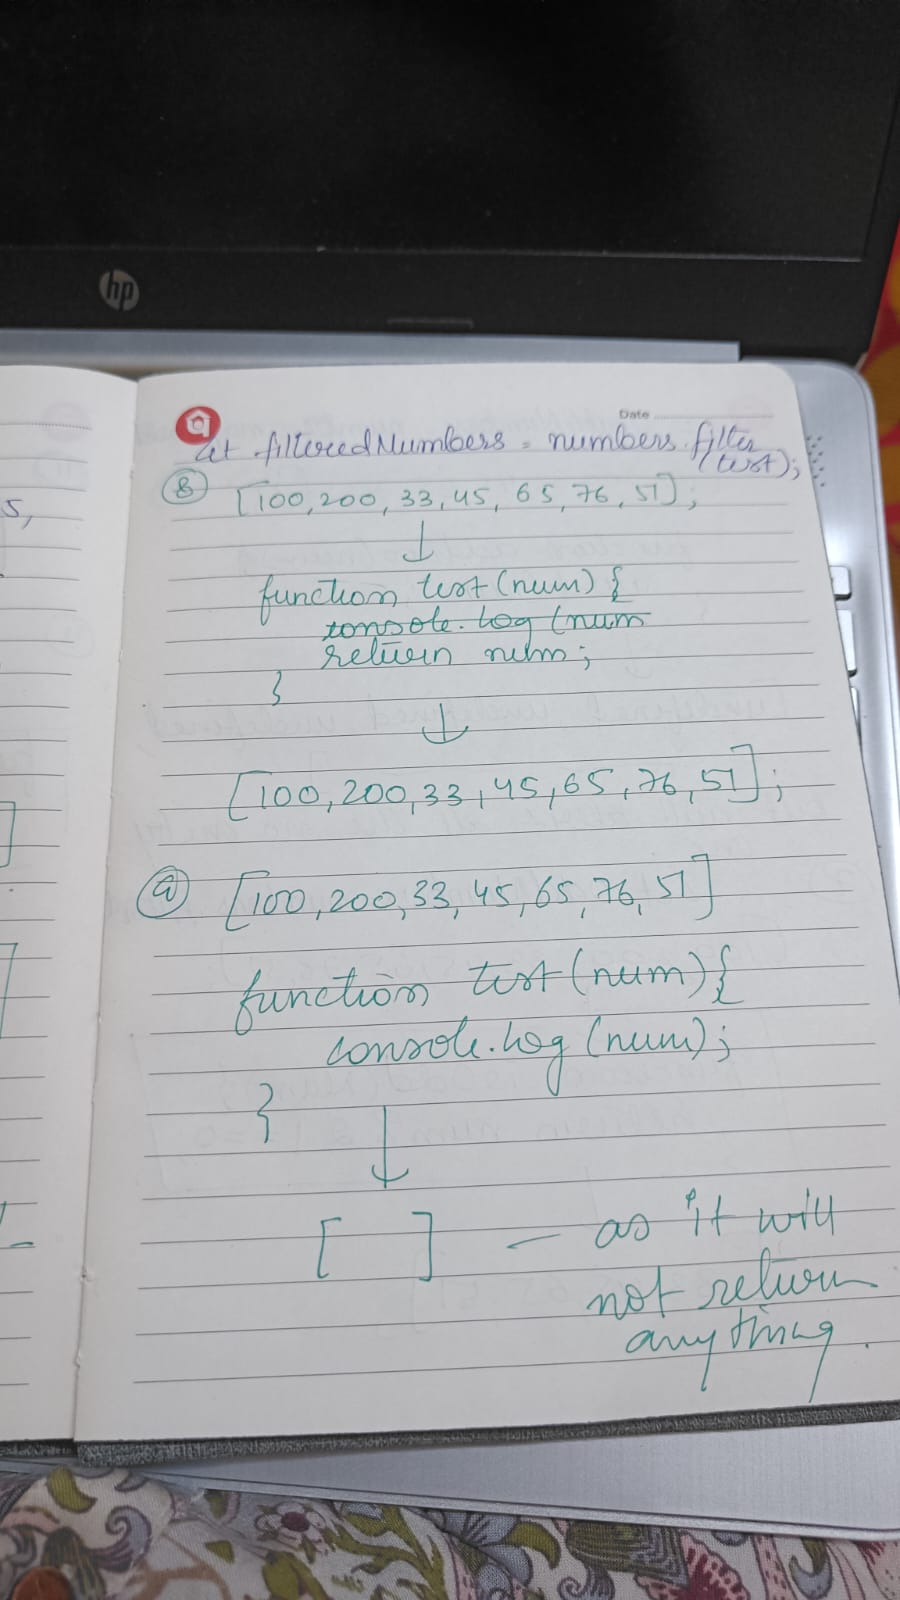 hp
Date
let filteredNumbers = numbers.filter
(test);
8 [100, 200, 33, 45, 65, 76, 51];
↓
function test (num) {
console.log (num
return num;
}
↓
[100, 200, 33, 45, 65, 76, 51];
9 [100, 200, 33, 45, 65, 76, 51]
function test (num) {
console.log (num);
}
↓
[ ] — as it will
not return
anything.
5,